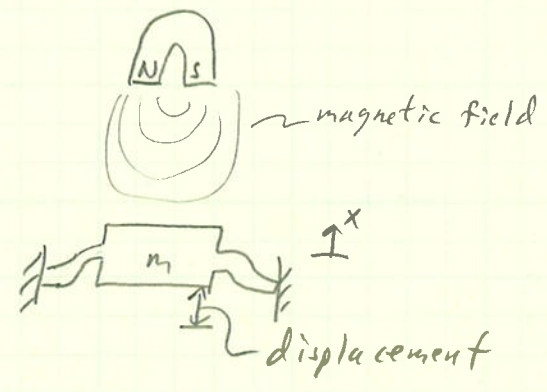 N S
magnetic field
x
m
displacement